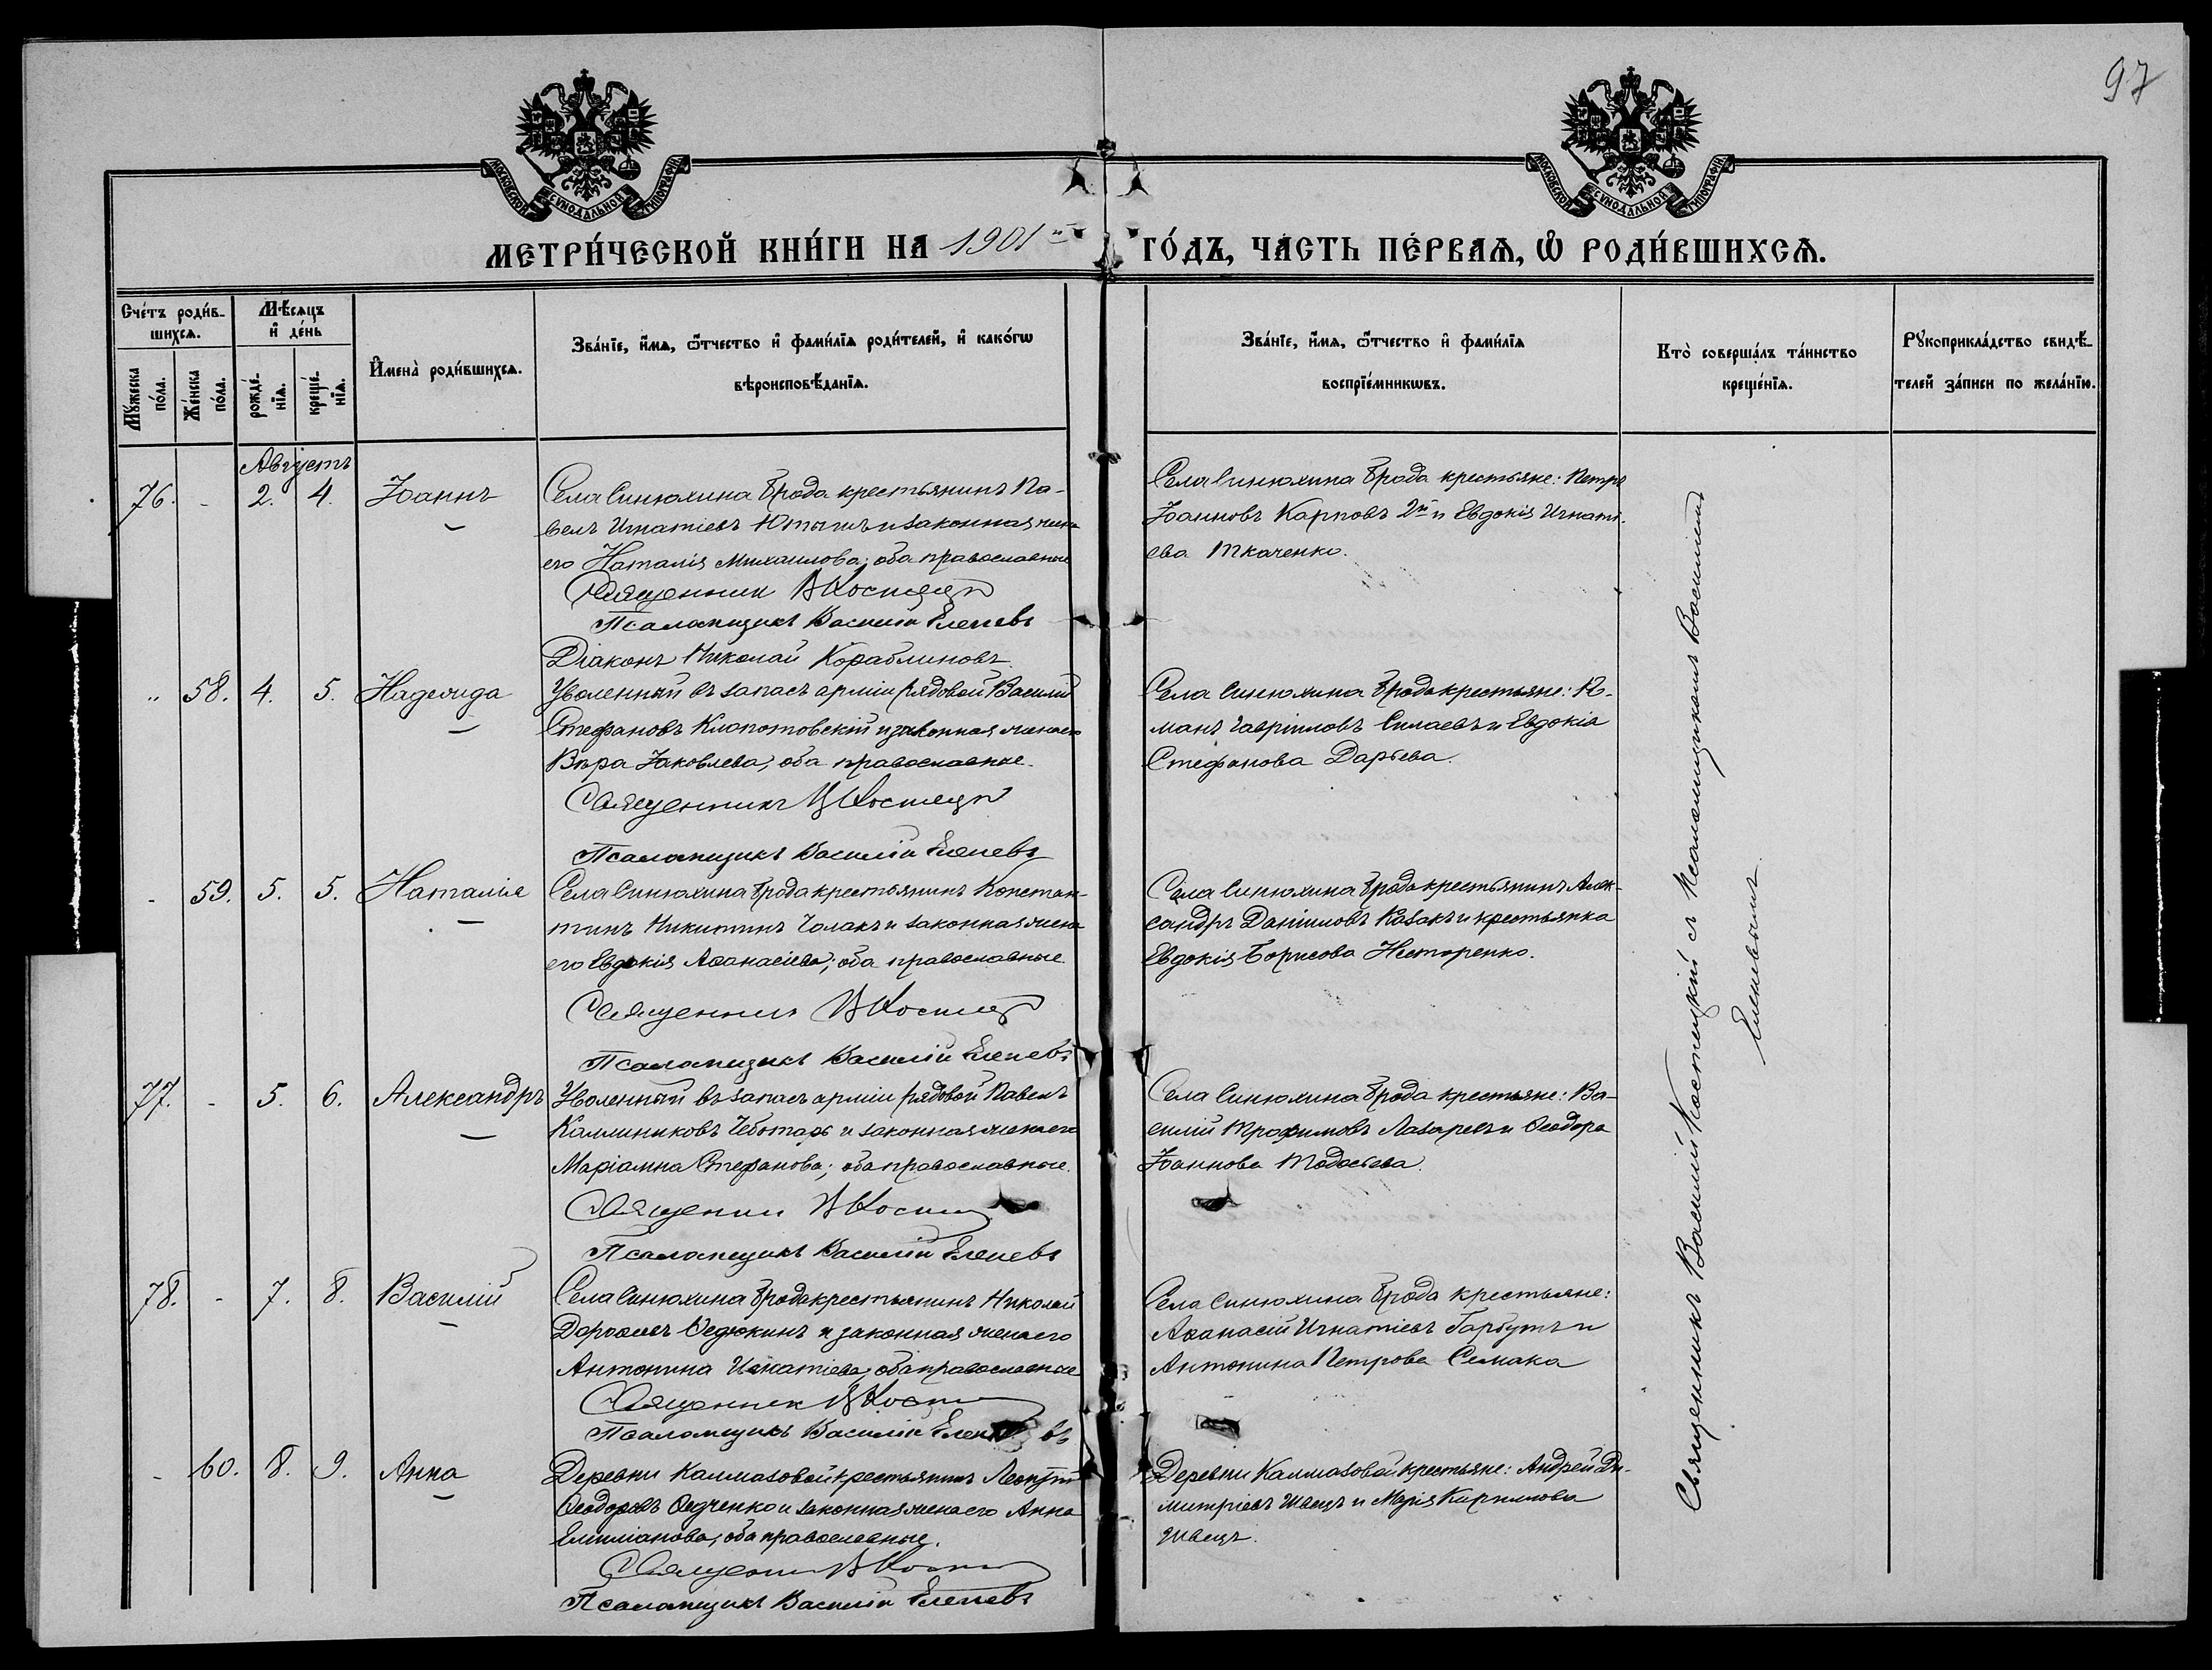 97
МОСКОВСКОЙ СУНОДАЛЬНОЙ ТИПОГРАФІИ
МОСКОВСКОЙ СУНОДАЛЬНОЙ ТИПОГРАФІИ
МЕТРИ́ЧЕСКОЙ КНИ́ГИ НА 1901 й ГО́ДЪ, ЧА́СТЬ ПЕ́РВАѦ, Ѡ҆ РОДИ́ВШИХСѦ.
Сче́тъ роди́в-
шихсѧ.
Мꙋ́жеска по́ла.
Же́нска по́ла.
Мѣ́сѧцъ
и҆ де́нь
рожде́-нїѧ.
креще́-нїѧ.
И҆мена̀ роди́вшихсѧ.
Зва́нїе, и҆́мѧ, ѻ҆́тчество и҆ фами́лїѧ роди́телей, и҆ како́гѡ
вѣроисповѣ́данїѧ.
Зва́нїе, и҆́мѧ, ѻ҆́тчество и҆ фами́лїѧ
воспрїе́мникѡвъ.
Кто̀ соверша́лъ та́инство
креще́нїѧ.
Рꙋкоприкла́дство свидѣ́-
телей за́писи по жела́нїю.
Августъ
76. - 2. 4. Іоаннъ
Села Синюхина Брода крестьянинъ Па-
велъ Игнатіевъ и законная жена
его Наталія Михаилова; оба православные
Священник В Костецк
Псаломщикъ Василій Еленевъ
Діаконъ Николай Кораблиновъ
Села Синюхина Брода крестьяне: Петръ
Іоанновъ Карповъ 2й и Евдокія Игнаті-
ева Ткаченко.
" 58. 4. 5. Надежда
Уволенный въ запасъ арміи рядовой Василій
Стефановъ Клопотовскій и законная жена его
Вѣра Іаковлева; оба православные.
Священникъ В Костецк
Псаломщикъ Василій Еленевъ
Села Синюхина Брода крестьяне: Ро-
манъ Гавріиловъ Силаевъ и Евдокія
Стефанова Дарьева.
- 59. 5. 5. Наталія
Села Синюхина Брода крестьянинъ Констан-
тинъ Никитинъ Чолакъ и законная жена
его Евдокія Аѳанасіева; оба православные
Священникъ В Костец
Псаломщикъ Василій Еленевъ
Села Синюхина Брода крестьянинъ Алек-
сандръ Даніиловъ Казакъ и крестьянка
Евдокія Борисова Несторенко.
77. - 5. 6. Александръ
Уволенный въ запасъ арміи рядовой Павелъ
Каллиниковъ Чеботарь и законная жена его
Маріамна Стефанова; оба православные.
Священник В Кости
Псаломщикъ Василій Еленевъ
Села Синюхина Брода крестьяне: Ва-
силій Трофимовъ Лазаревъ и Ѳеодора
Іоаннова Тодосьева.
78. - 7. 8. Василій
Села Синюхина Брода крестьянинъ Николай
Дороѳеевъ Ѳедюкинъ и законная жена его
Антонина Игнатіева; оба православные
Священник В Кост
Псаломщикъ Василій Еленевъ
Села Синюхина Брода крестьяне:
Аѳанасій Игнатіевъ Гарбузъ и
Антонина Петрова Симака
- 60. 8. 9. Анна
Деревни Калмазовой крестьянинъ Леонтій
Ѳеодоровъ Ѳедченко и законная жена его Анна
Емиліанова; оба православные.
Священник В Кост
Псаломщикъ Василій Еленевъ
Деревни Калмазовой крестьяне: Андрей Ди-
митріевъ Швецъ и Марія Кириллова
Швецъ.
Священникъ Василій Костецкій съ псаломщикомъ Василіемъ
Еленевымъ.